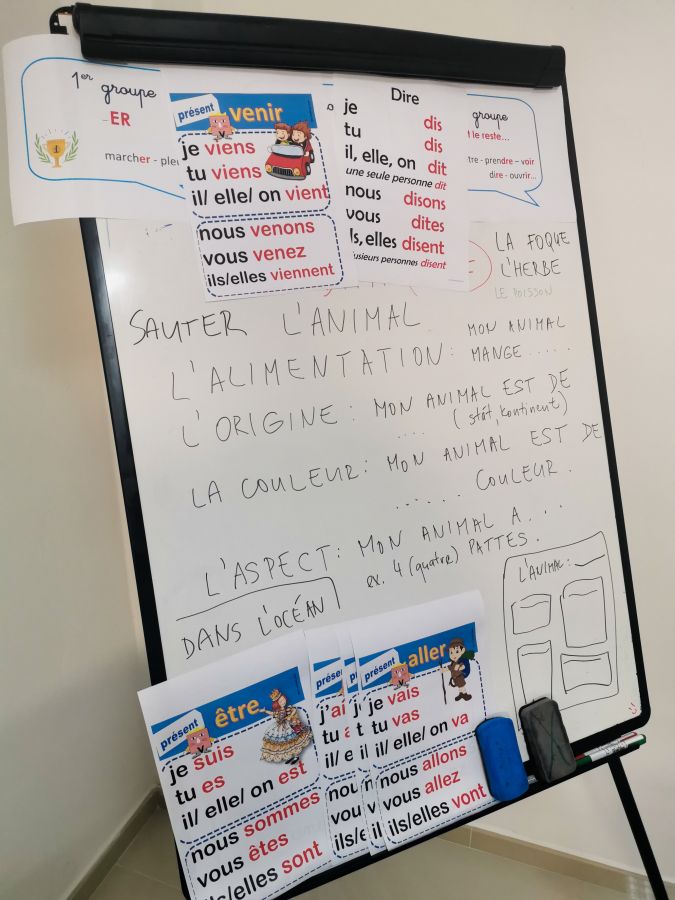 1er groupe
-ER
marcher - pleu
présent venir
je viens
tu viens
il/ elle/ on vient
nous venons
vous venez
ils/elles viennent
Dire
je dis
tu dis
il, elle, on dit
une seule personne dit
nous disons
vous dites
ls, elles disent
lusieurs personnes disent
groupe
t le reste...
tre - prendre – voir
dire - ouvrir...
LA FOQUE
L'HERBE
LE POISSON
SAUTER L'ANIMAL
L'ALIMENTATION: MON ANIMAL
MANGE .....
L'ORIGINE: MON ANIMAL EST DE
.... (stát, kontinent)
LA COULEUR: MON ANIMAL EST DE
...... COULEUR.
L'ASPECT: MON ANIMAL A ...
ex. 4 (quatre) PATTES.
DANS L'OCÉAN
L'ANIMAL:
présent être
je suis
tu es
il/ elle/ on est
nous sommes
vous êtes
ils/elles sont
prése
j'ai
tu a
il/ e
nou
vou
ils/e
présent aller
je vais
tu vas
il/ elle/ on va
nous allons
vous allez
ils/elles vont